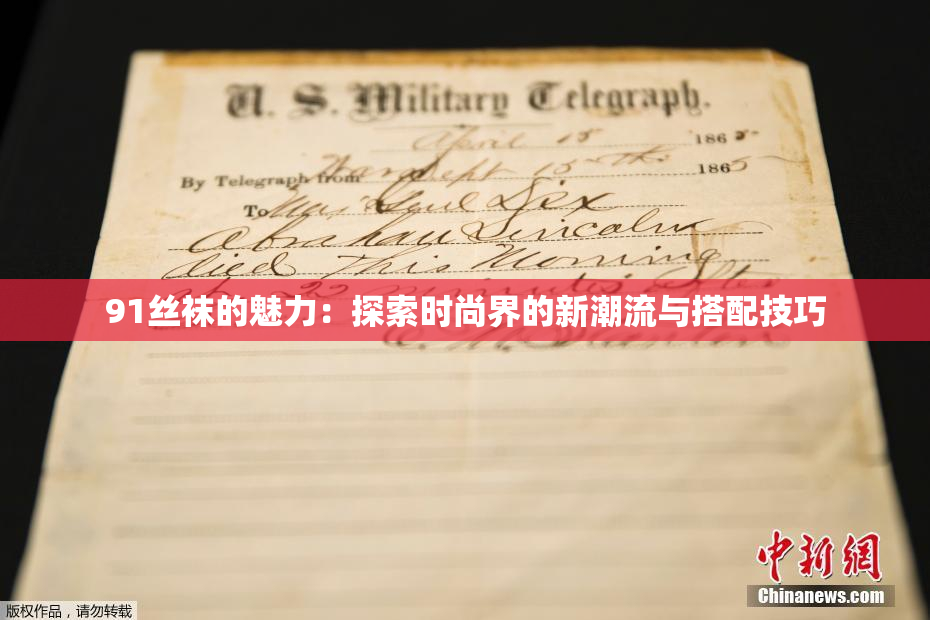 U. S. Military Telegraph.
April 15 1865
By Telegraph from War Dept 15th 1865
To Maj Genl Dix
Abraham Lincoln
died This Morning
at 22 minutes after
91丝袜的魅力：探索时尚界的新潮流与搭配技巧
E. M. Stanton
中新网
Chinanews.com
版权作品，请勿转载